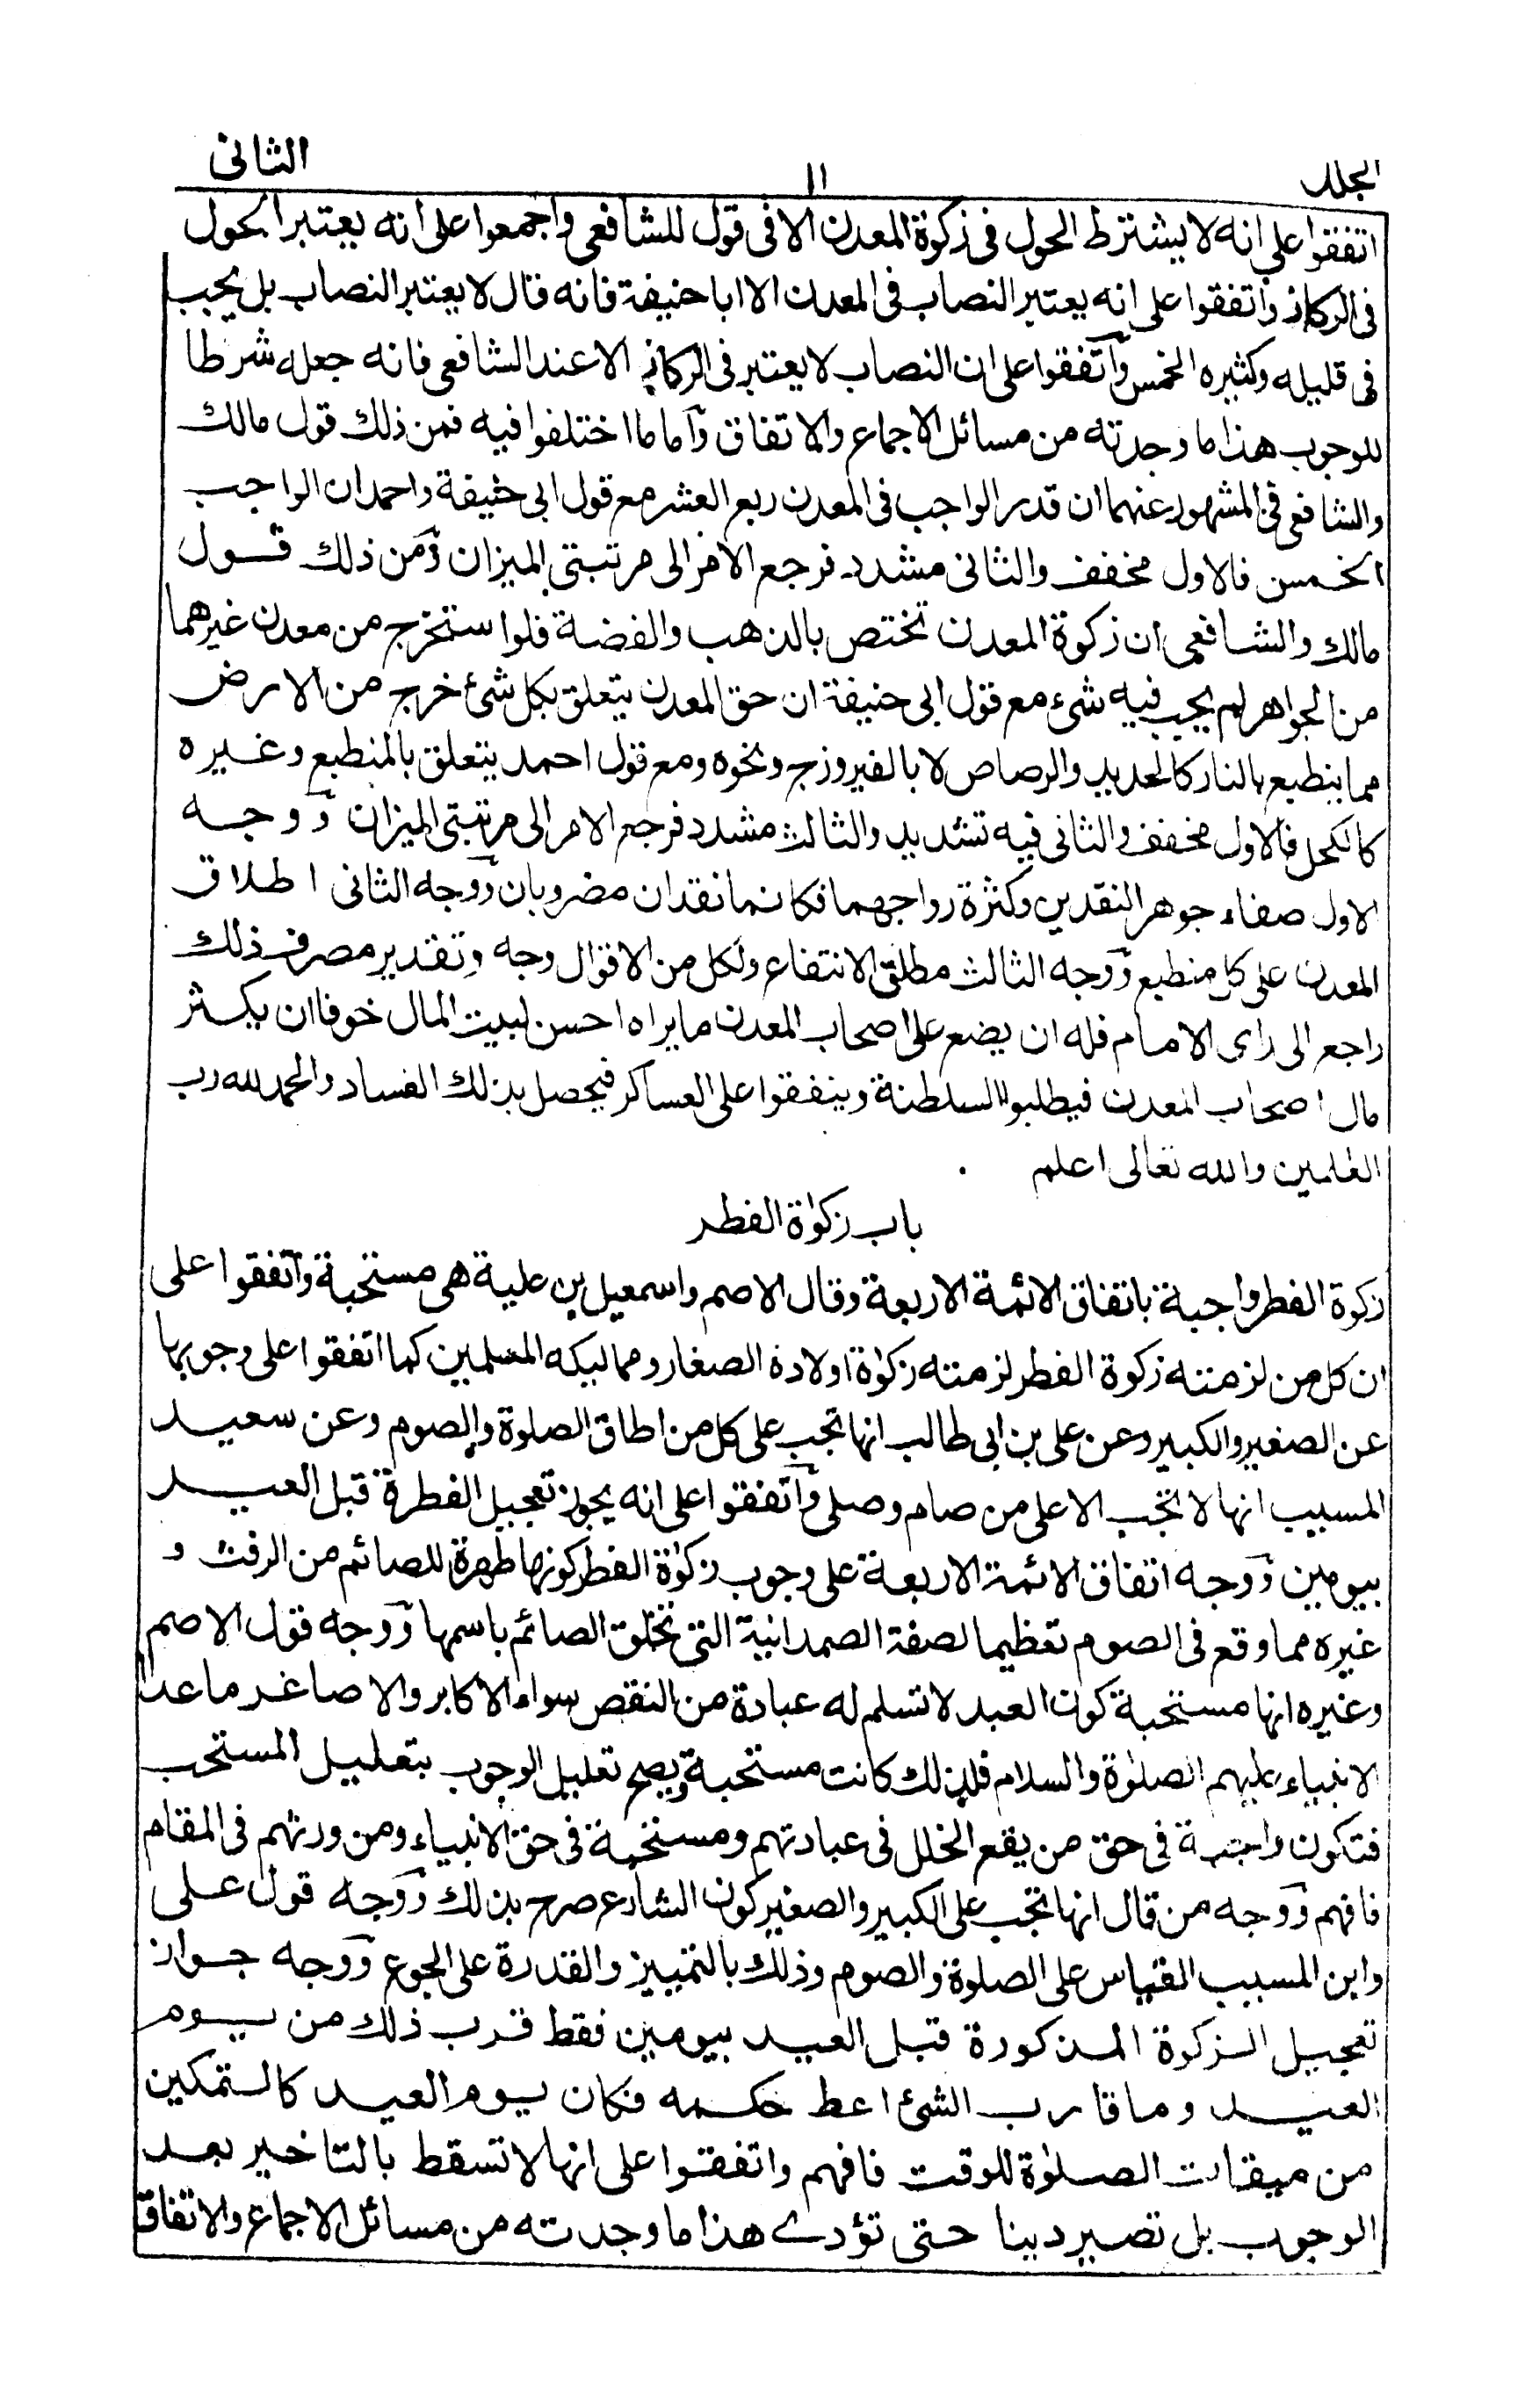 الجلد ١١ الثانى
اتفقوا على انه لا يشترط الحول فى زكوة المعدن الا فى قول للشافعى واجمعوا على انه يعتبر الحول
فى الركاز واتفقوا على انه يعتبر النصاب فى المعدن الا ابا حنيفة فانه قال لا يعتبر النصاب بل يجب
فى قليله وكثيره الخمس واتفقوا على ان النصاب لا يعتبر فى الركاز الا عند الشافعى فانه جعله شرطا
للوجوب هذا ما وجدته من مسائل الاجماع والاتفاق واما ما اختلفوا فيه فمن ذلك قول مالك
والشافعى فى المشهور عنهما ان قدر الواجب فى المعدن ربع العشر مع قول ابى حنيفة واحمد ان الواجب
الخمس فالاول مخفف والثانى مشدد فرجع الامر الى مرتبتى الميزان ومن ذلك قول
مالك والشافعى ان زكوة المعدن تختص بالذهب والفضة فلو استخرج من معدن غيرهما
من الجواهر لم يجب فيه شىء مع قول ابى حنيفة ان حق المعدن يتعلق بكل شئ خرج من الارض
مما ينطبع بالنار كالحديد والرصاص لا بالفيروزج ونحوه ومع قول احمد يتعلق بالمنطبع وغيره
كالكحل فالاول مخفف والثانى فيه تشديد والثالث مشدد فرجع الامر الى مرتبتى الميزان ووجه
الاول صفاء جوهر النقدين وكثرة رواجهما فكانما نقدان مضروبان ووجه الثانى اطلاق
المعدن على كل منطبع ووجه الثالث مطلق الانتفاع ولكل من الاقوال وجه وتقدير مصرف ذلك
راجع الى راى الامام فله ان يضع على اصحاب المعدن ما يراه احسن لبيت المال خوفا ان يكثر
مال اصحاب المعدن فيطلبوا السلطنة وينفقوا على العساكر فيحصل بذلك الفساد والحمد لله رب
العلمين والله تعالى اعلم
باب زكوٰة الفطر
زكوة الفطر واجبة باتفاق الائمة الاربعة وقال الاصم واسمعيل بن علية هى مستحبة واتفقوا على
ان كل من لزمته زكوة الفطر لزمته زكوٰة اولاده الصغار ومماليكه المسلمين كما اتفقوا على وجوبها
عن الصغير والكبير وعن على بن ابى طالب انها تجب على كل من اطاق الصلوة والصوم وعن سعيد
المسيب انها لا تجب الا على من صام وصلى واتفقوا على انه يجوز تعجيل الفطرة قبل العيد
بيومين ووجه اتفاق الائمة الاربعة على وجوب زكوٰة الفطر كونها طهرة للصائم من الرفث و
غيره مما وقع فى الصوم تعظيما لصفة الصمدانية التى تخلق الصائم باسمها ووجه قول الاصم
وغيره انها مستحبة كون العبد لا تسلم له عبادة من النقص سواء الاكابر والاصاغر ما عدا
الانبياء عليهم الصلوٰة والسلام فلذلك كانت مستحبة ويصح تعليل الوجوب بتعليل المستحب
فتكون واجبة فى حق من يقع الخلل فى عبادتهم ومستحبة فى حق الانبياء ومن ورثهم فى المقام
فافهم ووجه من قال انها تجب على الكبير والصغير كون الشارع صرح بذلك ووجه قول على
وابن المسيب القياس على الصلوة والصوم وذلك بالتمييز والقدرة على الجوع ووجه جواز
تعجيل الزكوة المذكورة قبل العيد بيومين فقط قرب ذلك من يوم
العيد وما قارب الشئ اعط حكمه فكان يوم العيد كالتمكين
من ميقات الصلوٰة للوقت فافهم واتفقوا على انها لا تسقط بالتاخير بعد
الوجوب بل تصير دينا حتى تؤدى هذا ما وجدته من مسائل الاجماع والاتفاق